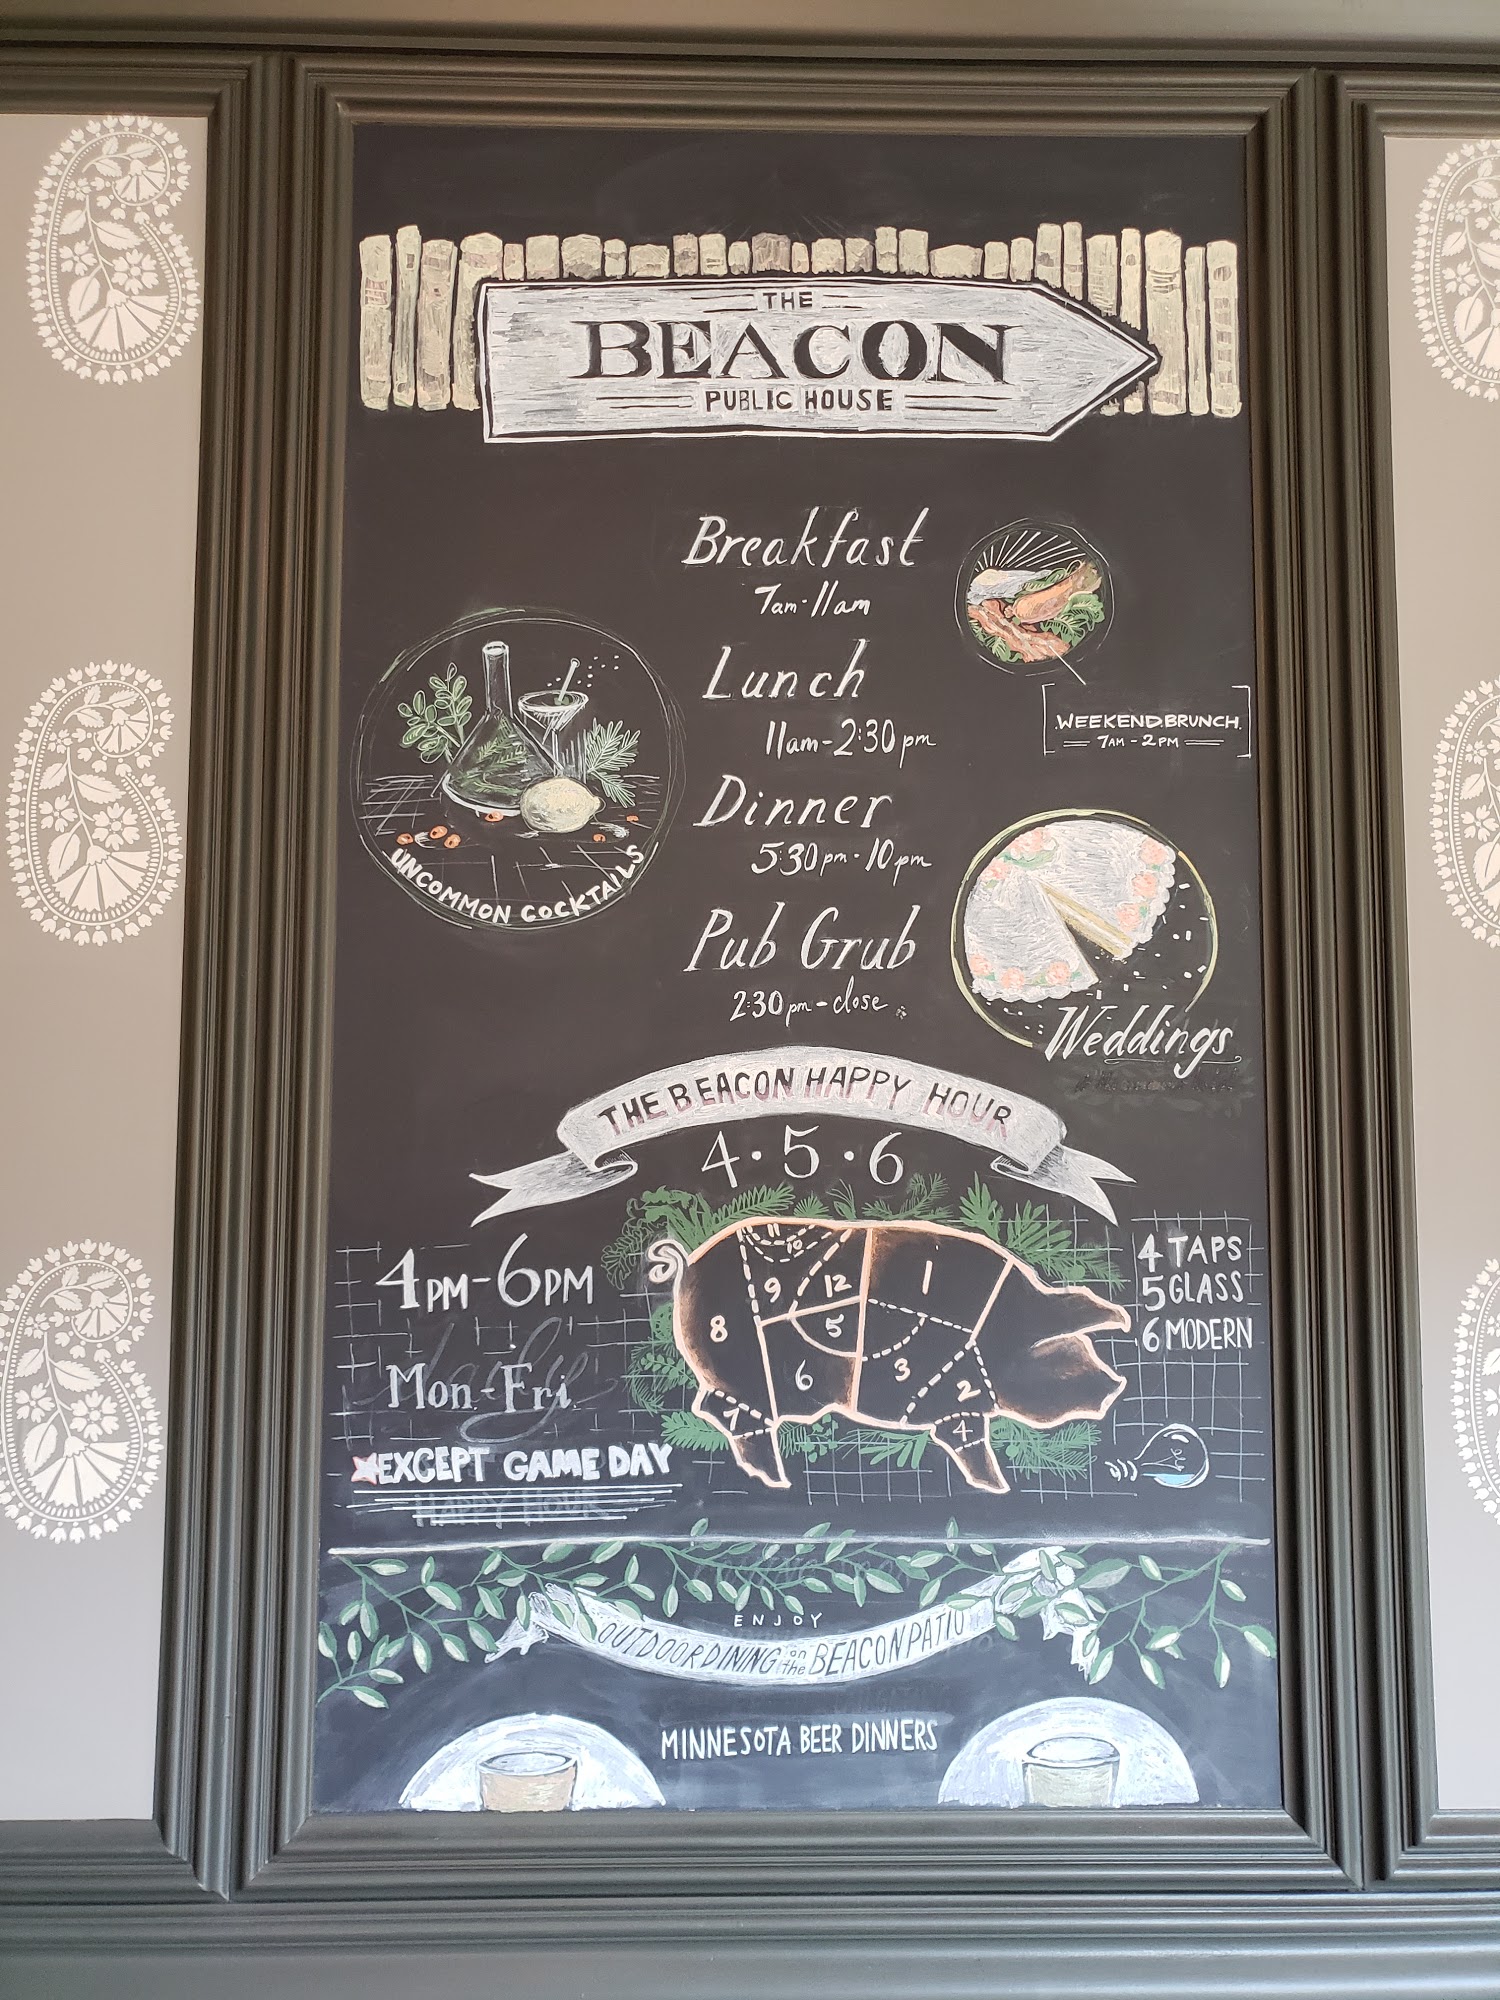 THE
BEACON
PUBLIC HOUSE
Breakfast
7am-11am
Lunch
11am-2:30pm
WEEKEND BRUNCH
7AM - 2PM
Dinner
5:30pm-10pm
UNCOMMON COCKTAILS
Pub Grub
2:30pm-close
Weddings
THE BEACON HAPPY HOUR
4·5·6
4PM-6PM
Mon-Fri
EXCEPT GAME DAY
HAPPY HOUR
11
10
9
12
1
8
5
6
3
2
7
4
4 TAPS
5 GLASS
6 MODERN
ENJOY
OUTDOOR DINING on the BEACON PATIO
MINNESOTA BEER DINNERS